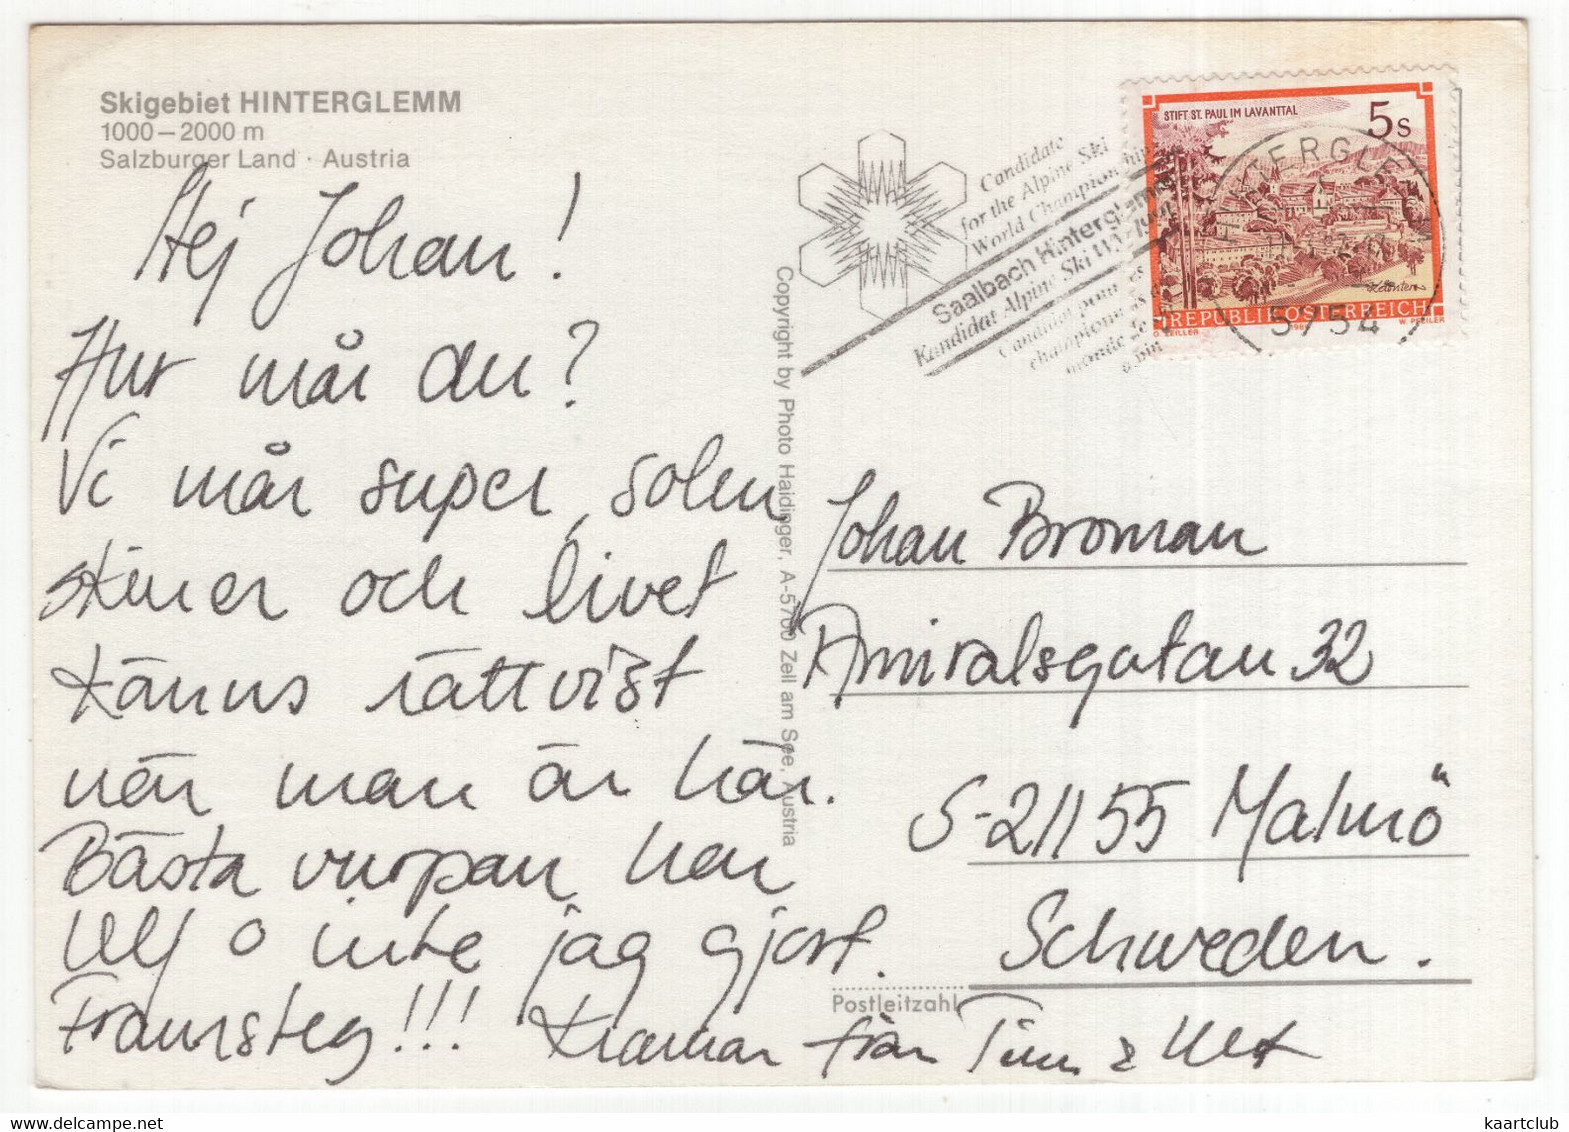 Skigebiet HINTERGLEMM
1000–2000 m
Salzburger Land · Austria
Hej Johan!
Hur mår du?
Vi mår super, solen
skiner och livet
känns rättvist
när man är här.
Bästa vurpan har
Ulf o inte jag gjort.
Framsteg!!! Kramar från Tim & Ulf
Copyright by Photo Haidinger, A-5700 Zell am See, Austria
Candidate
for the Alpine Ski
World Championship
Saalbach Hinterglemm
Kandidat Alpine Ski WM 1991
Candidat pour les
championnats du
monde de ski
alpin
STIFT ST. PAUL IM LAVANTTAL
5 S
REPUBLIK ÖSTERREICH
W. PFEILER
HINTERGLEMM
5754
Johan Broman
Amiralsgatan 32
S-21155 Malmö
Schweden.
Postleitzahl
kaartclub